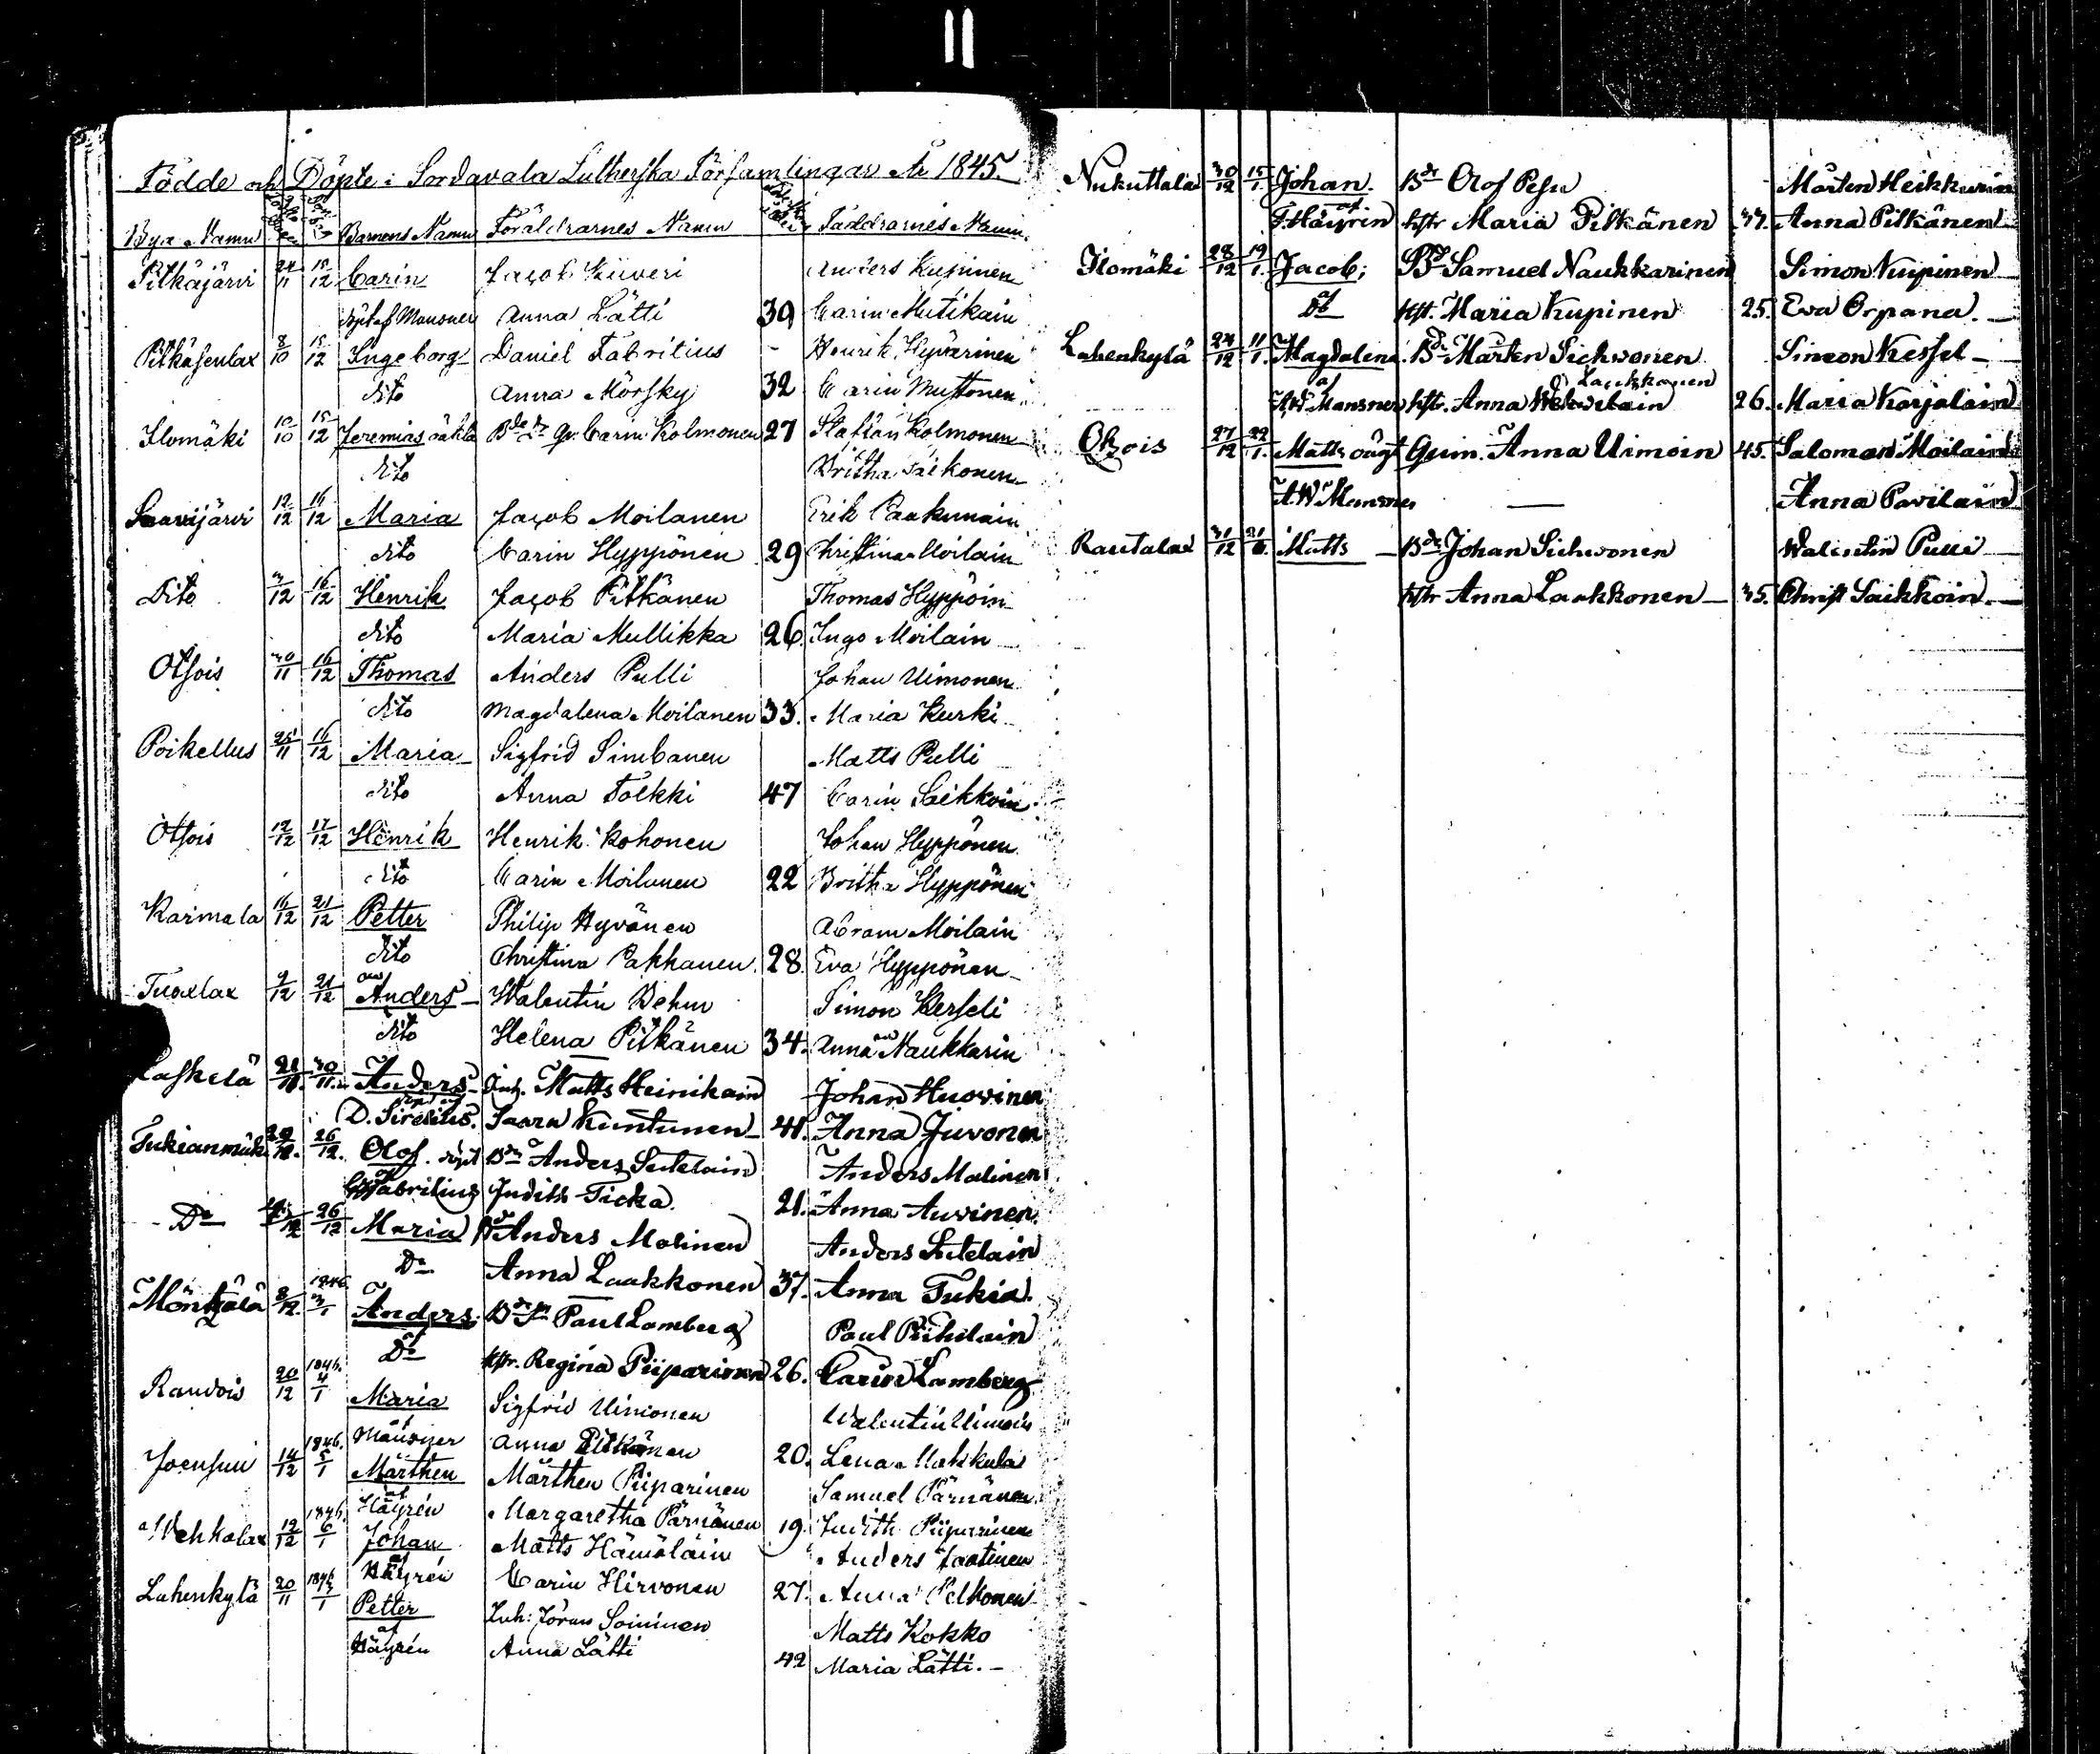 Födde och Döpte i Sordavala Lutherska Församlingar År 1845.
Bya Namn Barnens Namn Föräldrarnes Namn Faddrarnes Namn
Pitkäjärvi 24/11 15/12 Carin Jacob Kiiveri Anders Kupinen
döpt af Mansner Anna Lätti 39 Carin Mutikain
Pitkäsenlax 8/10 15/12 Ingeborg Daniel Fabritius - Henrik Hyvärinen
dito Anna Mörsky 32 Carin Muttonen
Ilomäki 10/10 15/12 Jeremias oäkta Carin Kolmonen 27 Staffan Kolmonen
dito Britha
Saavijärvi 12/12 16/12 Maria Jacob Moilanen Erik Paakunain
dito Carin Hyppönen 29 Christina Moilain
Dito 3/12 16/12 Henrik Jacob Pitkänen Thomas Hyppöin
dito Maria Mullikka 26. Ingo Moilain
Otsois 30/11 16/12 Thomas Anders Pulli Johan Uimonen
dito Magdalena Moilanen 33. Maria Kurki
Poikellus 25/11 16/12 Maria Sigfrid Simbanen Matts Pulli
dito Anna Tolkki 47 Carin Saikkoin
Otsois 12/12 17/12 Henrik Henrik Kohonen Johan Hyppönen
dito Carin Moilanen 22 Britha Hyppönen
Karmala 16/12 21/12 Petter Philip Hyvönen Abram Moilain
dito Christina Pakkanen. 28. Eva Hyppönen
Tuoxlax 9/12 21/12 Anders Walentin Behm Simon Kerseli
dito Helena Pitkänen 34. Anna Naukkarin
Laskelä 30/11 Anders Inh. Matts Heinikain Johan Huovinen
D. Sirelius. Saara Kuntunen 41. Anna Juvonen
Tukianmäki 26/12. Olof. döpt Bd Anders Sutelain Anders Malinen
af Fabritius Judith Ticka. 21. Anna Auvinen.
Do 26/12 Maria Anders Malinen Anders Sutelain
Do Anna Laakkonen 37. Anna Tukia.
8/12. 1846 3/1 Anders. Paul Lamberg Paul Pihilain
af Do hstr. Regina Piiparinen 26. Carin Lamberg
Raudois 20/12 1846. 4/1 Maria Sigfrid Uimonen Walentin Uimoin
af Mansner Anna Pitkänen 20. Lena Makkula
Joensuu 14/12 1846. 5/1 Märthen Märthen Piiparinen Samuel Pärnänen
af Häyrén Margaretha Pärnänen 19. Judith Piiparinen
Wehkalax 12/12 1846. 6/1 Johan Matts Hämäläin Anders Jaatinen
af Häyrén Carin Hirvonen 27. Anna Pelkonen
Lahenkylä 20/11 1846 Petter Inh: Jöran Soininen Matts Kokko
af Häyrén Anna Lätti 42 Maria Lätti. -
Nukuttalax 30/12 15/1. Johan. Bd Olof Pesu Mårten Heikkurin
af F. Häyrén hstr Maria Pitkänen 37. Anna Pitkänen
Ilomäki 28/12 19/1. Jacob; Bd Samuel Naukkarinen Simon Kupinen
af Do hst. Maria Kupinen 25. Eva Orpana.
Lahenkylä 24/12 11/1. Magdalena. Bd Mårten Sichwonen Simon Kessel
Laukkanen
af AW Mansner hstr. Anna 26. Maria Karjalain
Otsois 27/12 22/1. Matts oägt Qvin. Anna Uimoin 45. Salomon Moilain
AW Mansner — Anna Pavilain
Rautalax 31/12 Matts Bd Johan Sichwonen Walentin Pulli
hstr Anna Laakkonen 35. Christ Saikkoin.